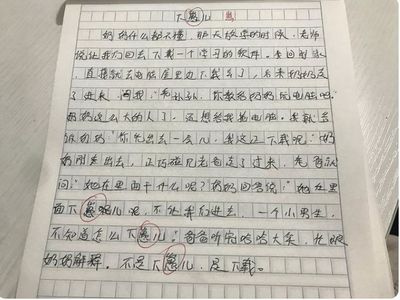 下崽儿
奶奶什么都不懂,那天放学的时候,老师
说让我们回去下载一个学习的软件。我回到家,
直接就去电脑屋里边下载去了,后来奶奶走
了进来,问我:"你教教奶奶玩电脑吧。"
奶奶这么大的人了,还想学我弄电脑。我就告
诉奶奶:"你先出去一会儿,我这正下载呢!"奶
奶刚走出去,正巧碰见爸爸走了过来,爸爸
问:"她在里面干什么呢?"奶奶回答说:"她在里
面下崽呢儿呢,不让我们进去,一个小男生,
不知道怎么下崽儿。"爸爸听完哈哈大笑,忙跟
奶奶解释,不是下崽儿,是下载。